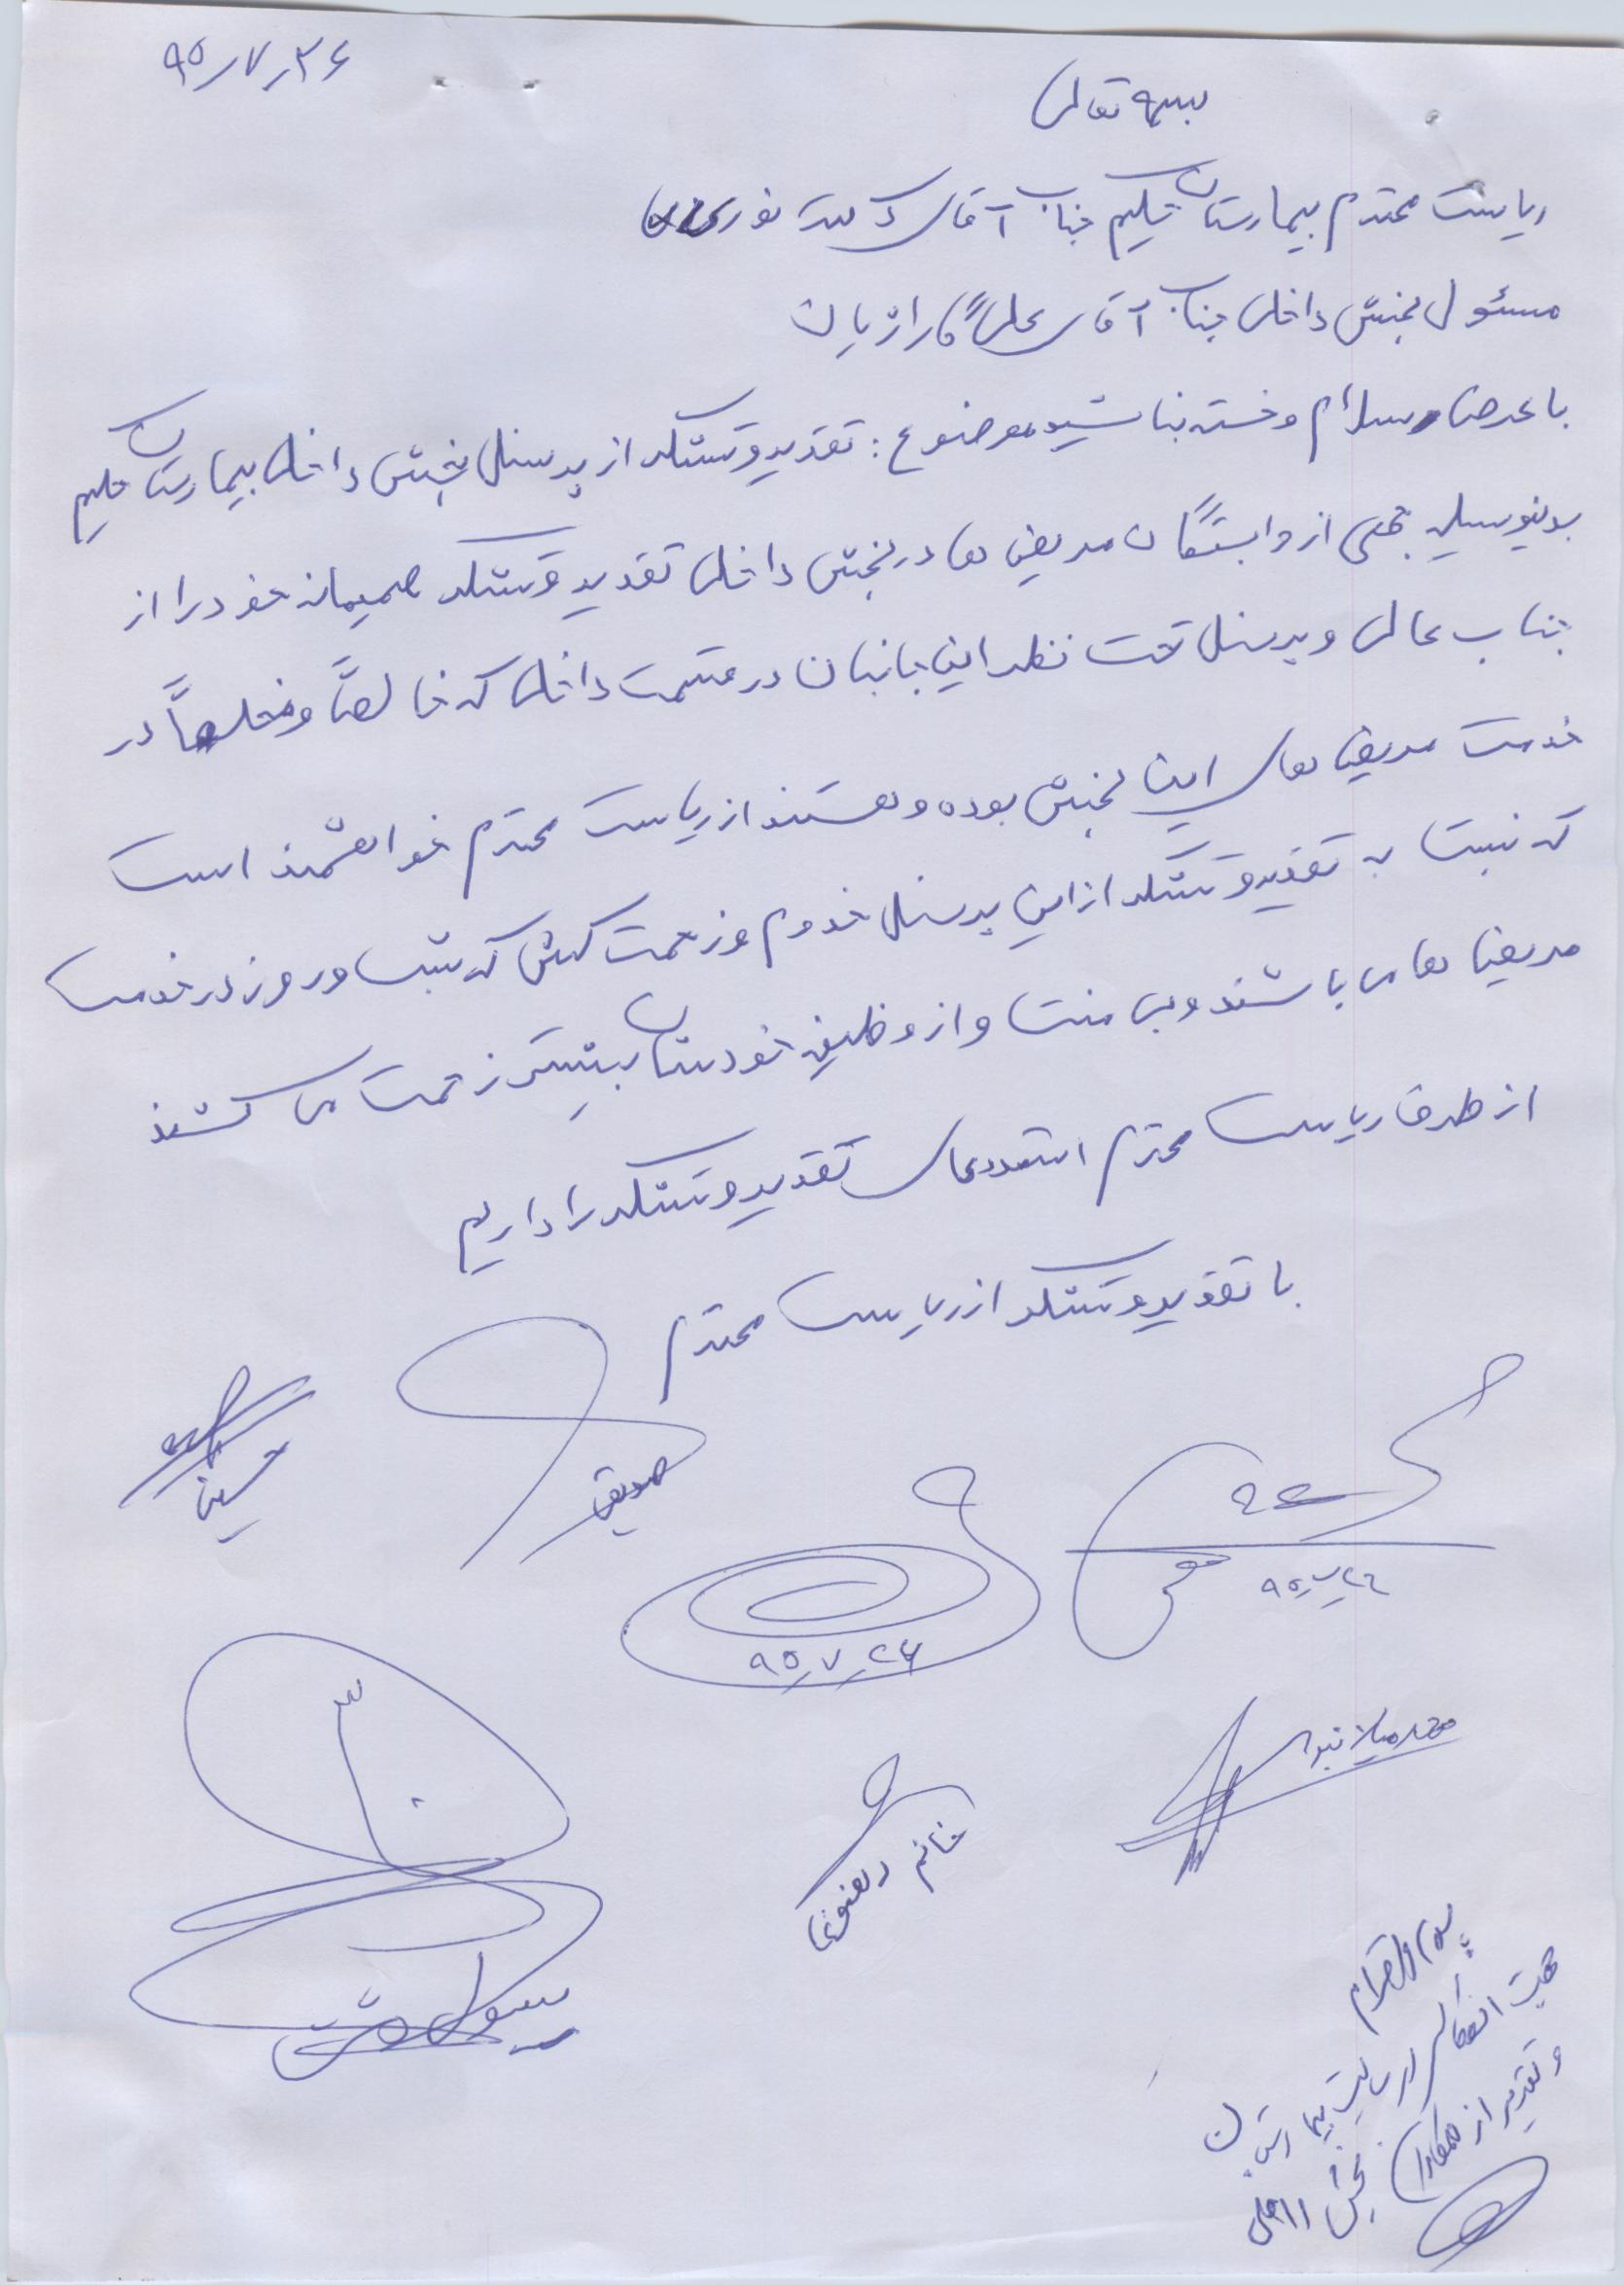 ۹۵٫۷٫۲۶
بسمه تعالی
ریاست محترم بیمارستان حکیم جناب آقای دکتر نوریان
مسئول بخش داخلی جناب آقای علی گاراژیان
با عرض سلام و خسته نباشید موضوع : تقدیر و تشکر از پرسنل بخش داخلی بیمارستان حکیم
بدینوسیله جمعی از وابستگان مریض ها در بخش داخلی تقدیر و تشکر صمیمانه خود را از
جناب عالی و پرسنل تحت نظر این جانبان در قسمت داخلی که خالصاً و مخلصاً در
خدمت مریض های این بخش بوده و هستند از ریاست محترم خواهشمند است
که نسبت به تقدیر و تشکر از این پرسنل خدوم و زحمت کش که شب و روز در خدمت
مریض ها می باشند و بی منت و از وظیفه خودشان بیشتر زحمت می کشند
از طرف ریاست محترم استعدعای تقدیر و تشکر را داریم
با تقدیر و تشکر از ریاست محترم
حسینی
صدیقی
۹۵٫۷٫۲۶
۹۵٫۷٫۲۶
محمد میلانبو
خانم رضوی
با سلام و احترام
جهت انعکاس در سایت بیمارستان
و تقدیر از همکاران بخش داخلی